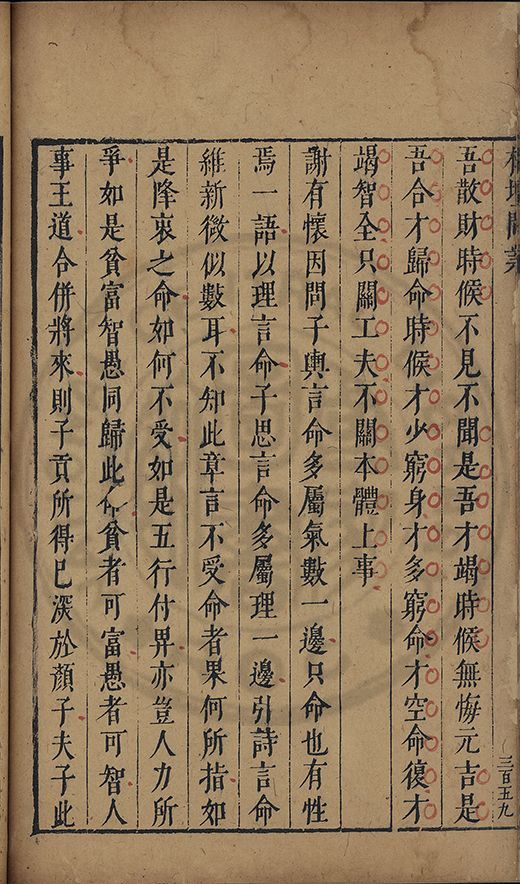 榕壇問業
三百五九
吾散財時候不見不聞是吾才竭時候無悔元吉是
吾合才歸命時候才少窮身才多窮命才空命復才
竭智全只關工夫不關本體上事
謝有懷因問子輿言命多屬氣數一邊只命也有性
焉一語以理言命子思言命多屬理一邊引詩言命
維新微似數耳不知此章言不受命者果何所指如
是降衷之命如何不受如是五行付畀亦豈人力所
爭如是貧富智愚同歸此命貧者可富愚者可智人
事王道合併將來則子貢所得已深於顏子夫子此